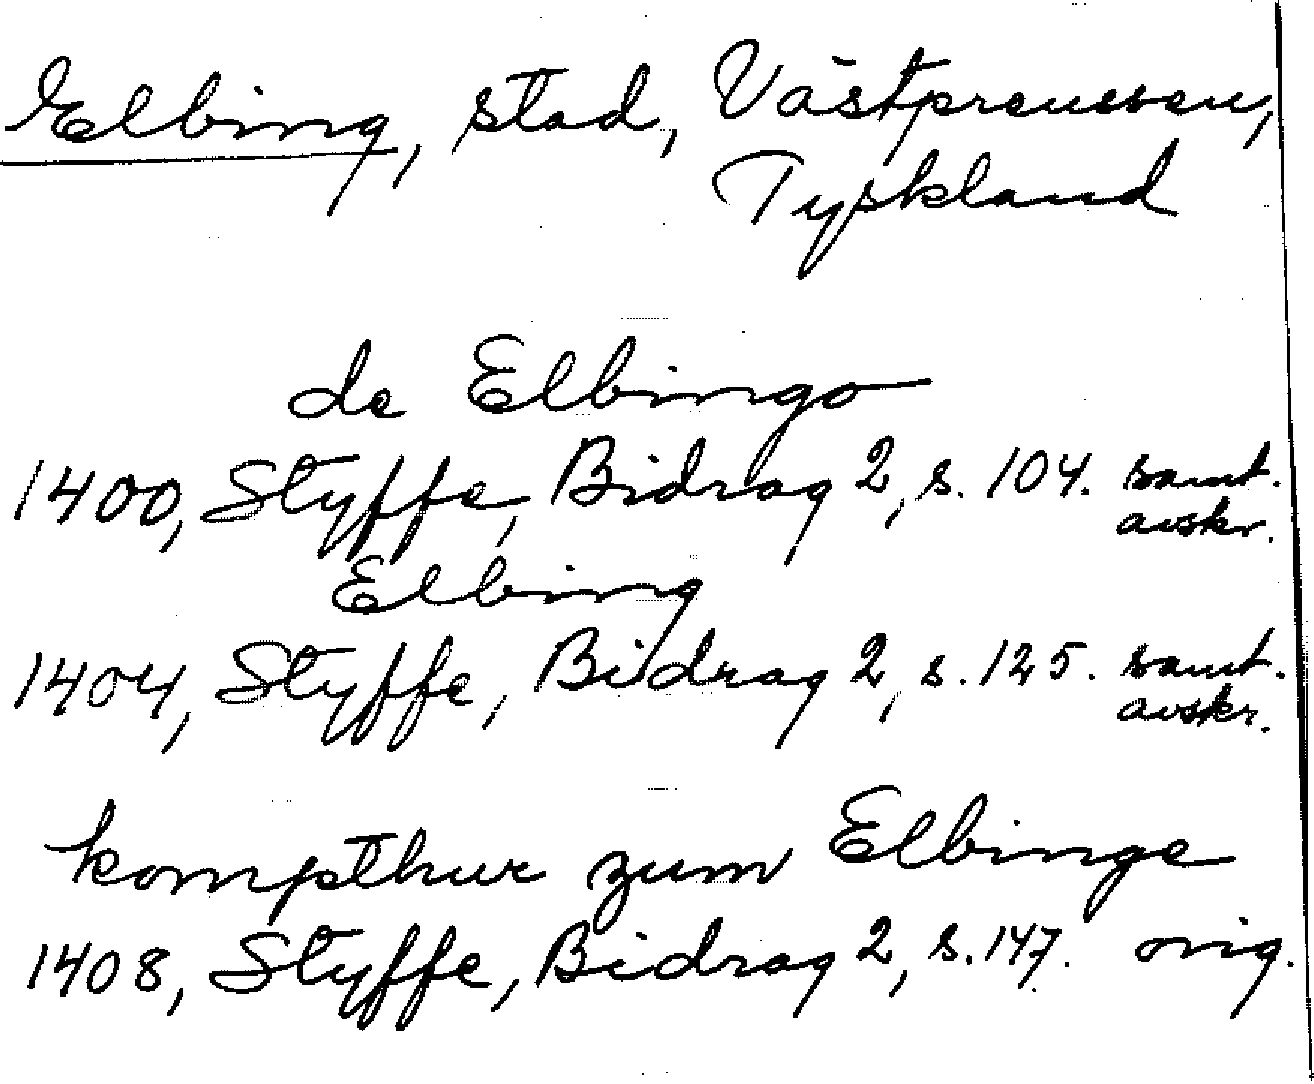 Elbing, stad, Västpreussen,
Tyskland
de Elbingo
1400, Styffe, Bidrag 2, s. 104. samt.
avskr.
Elbing
1404, Styffe, Bidrag 2, s. 125. samt.
avskr.
kompthur zum Elbinge
1408, Styffe, Bidrag 2, s. 147. orig.